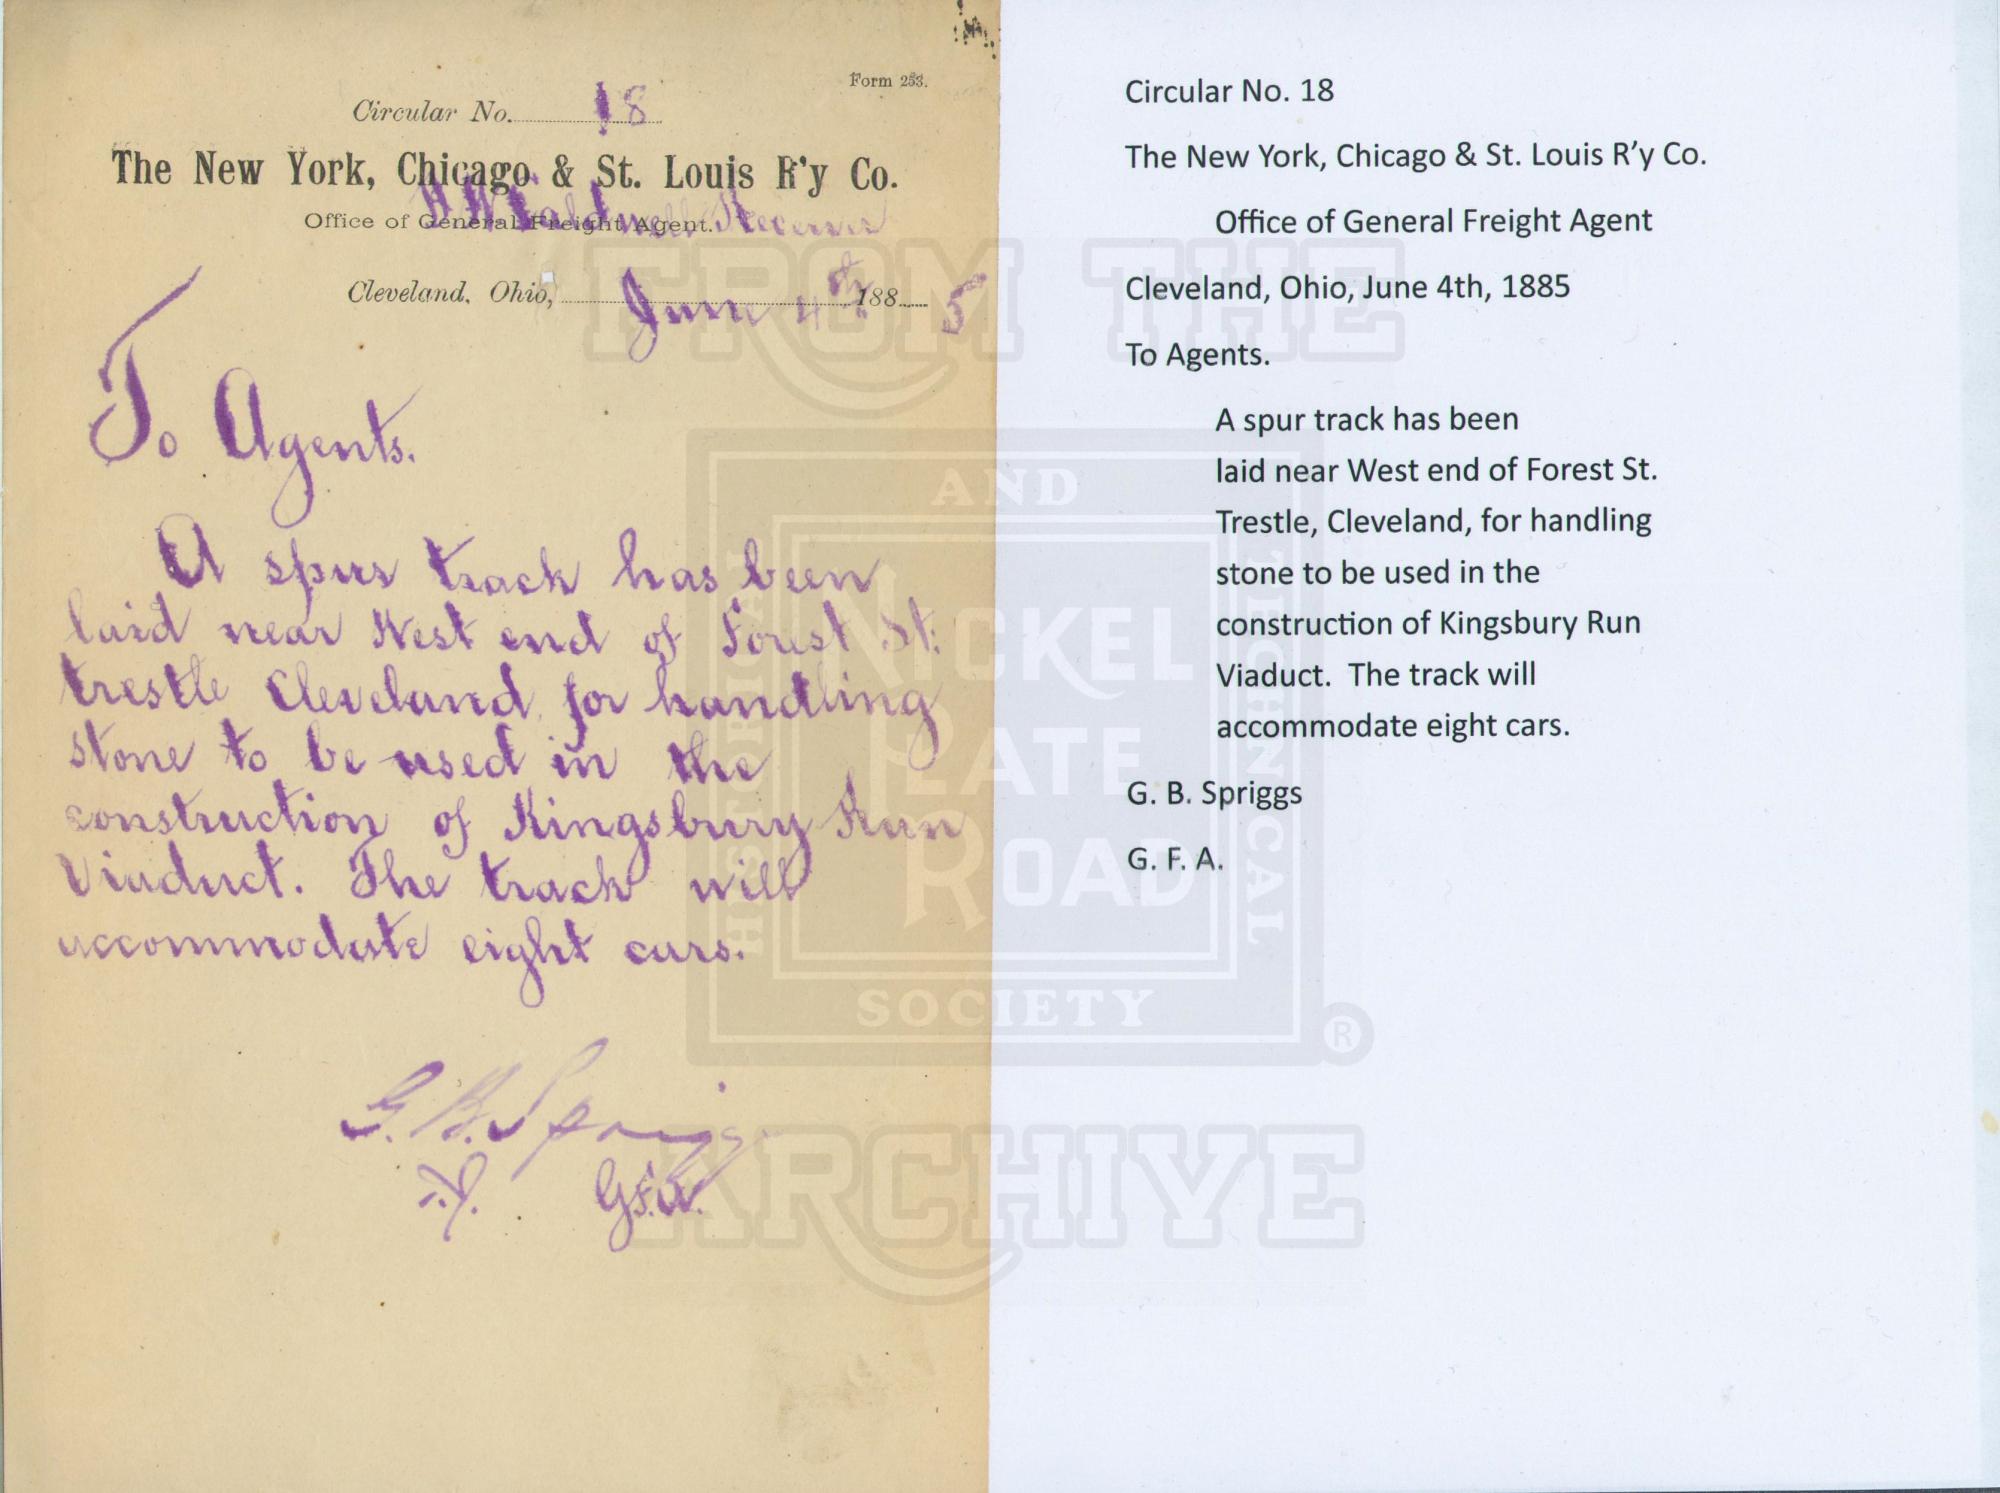 Form 253.
Circular No. 18
The New York, Chicago & St. Louis R'y Co.
D W Caldwell Receiver
Office of General Freight Agent.
Cleveland, Ohio, June 4th 1885
To Agents.
A spur track has been
laid near West end of Forest St.
trestle Cleveland, for handling
stone to be used in the
construction of Kingsbury Run
Viaduct. The track will
accommodate eight cars.
G. B. Spriggs
G.F.A.
Circular No. 18
The New York, Chicago & St. Louis R'y Co.
Office of General Freight Agent
Cleveland, Ohio, June 4th, 1885
To Agents.
A spur track has been
laid near West end of Forest St.
Trestle, Cleveland, for handling
stone to be used in the
construction of Kingsbury Run
Viaduct. The track will
accommodate eight cars.
G. B. Spriggs
G. F. A.
FROM THE
NICKEL
PLATE
ROAD
HISTORICAL
AND
TECHNICAL
SOCIETY
®
ARCHIVE